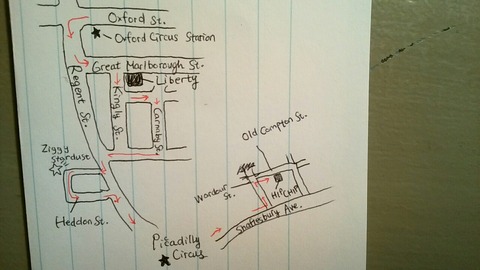 Oxford St.
Oxford Circus Station
Great Marlborough St.
Liberty
Regent St.
Kingly St.
Carnaby St.
Ziggy
Stardust
Heddon St.
Picadilly
Circus
Old Compton St.
Wardour
St.
HIPCHIPS
Shaftesbury Ave.